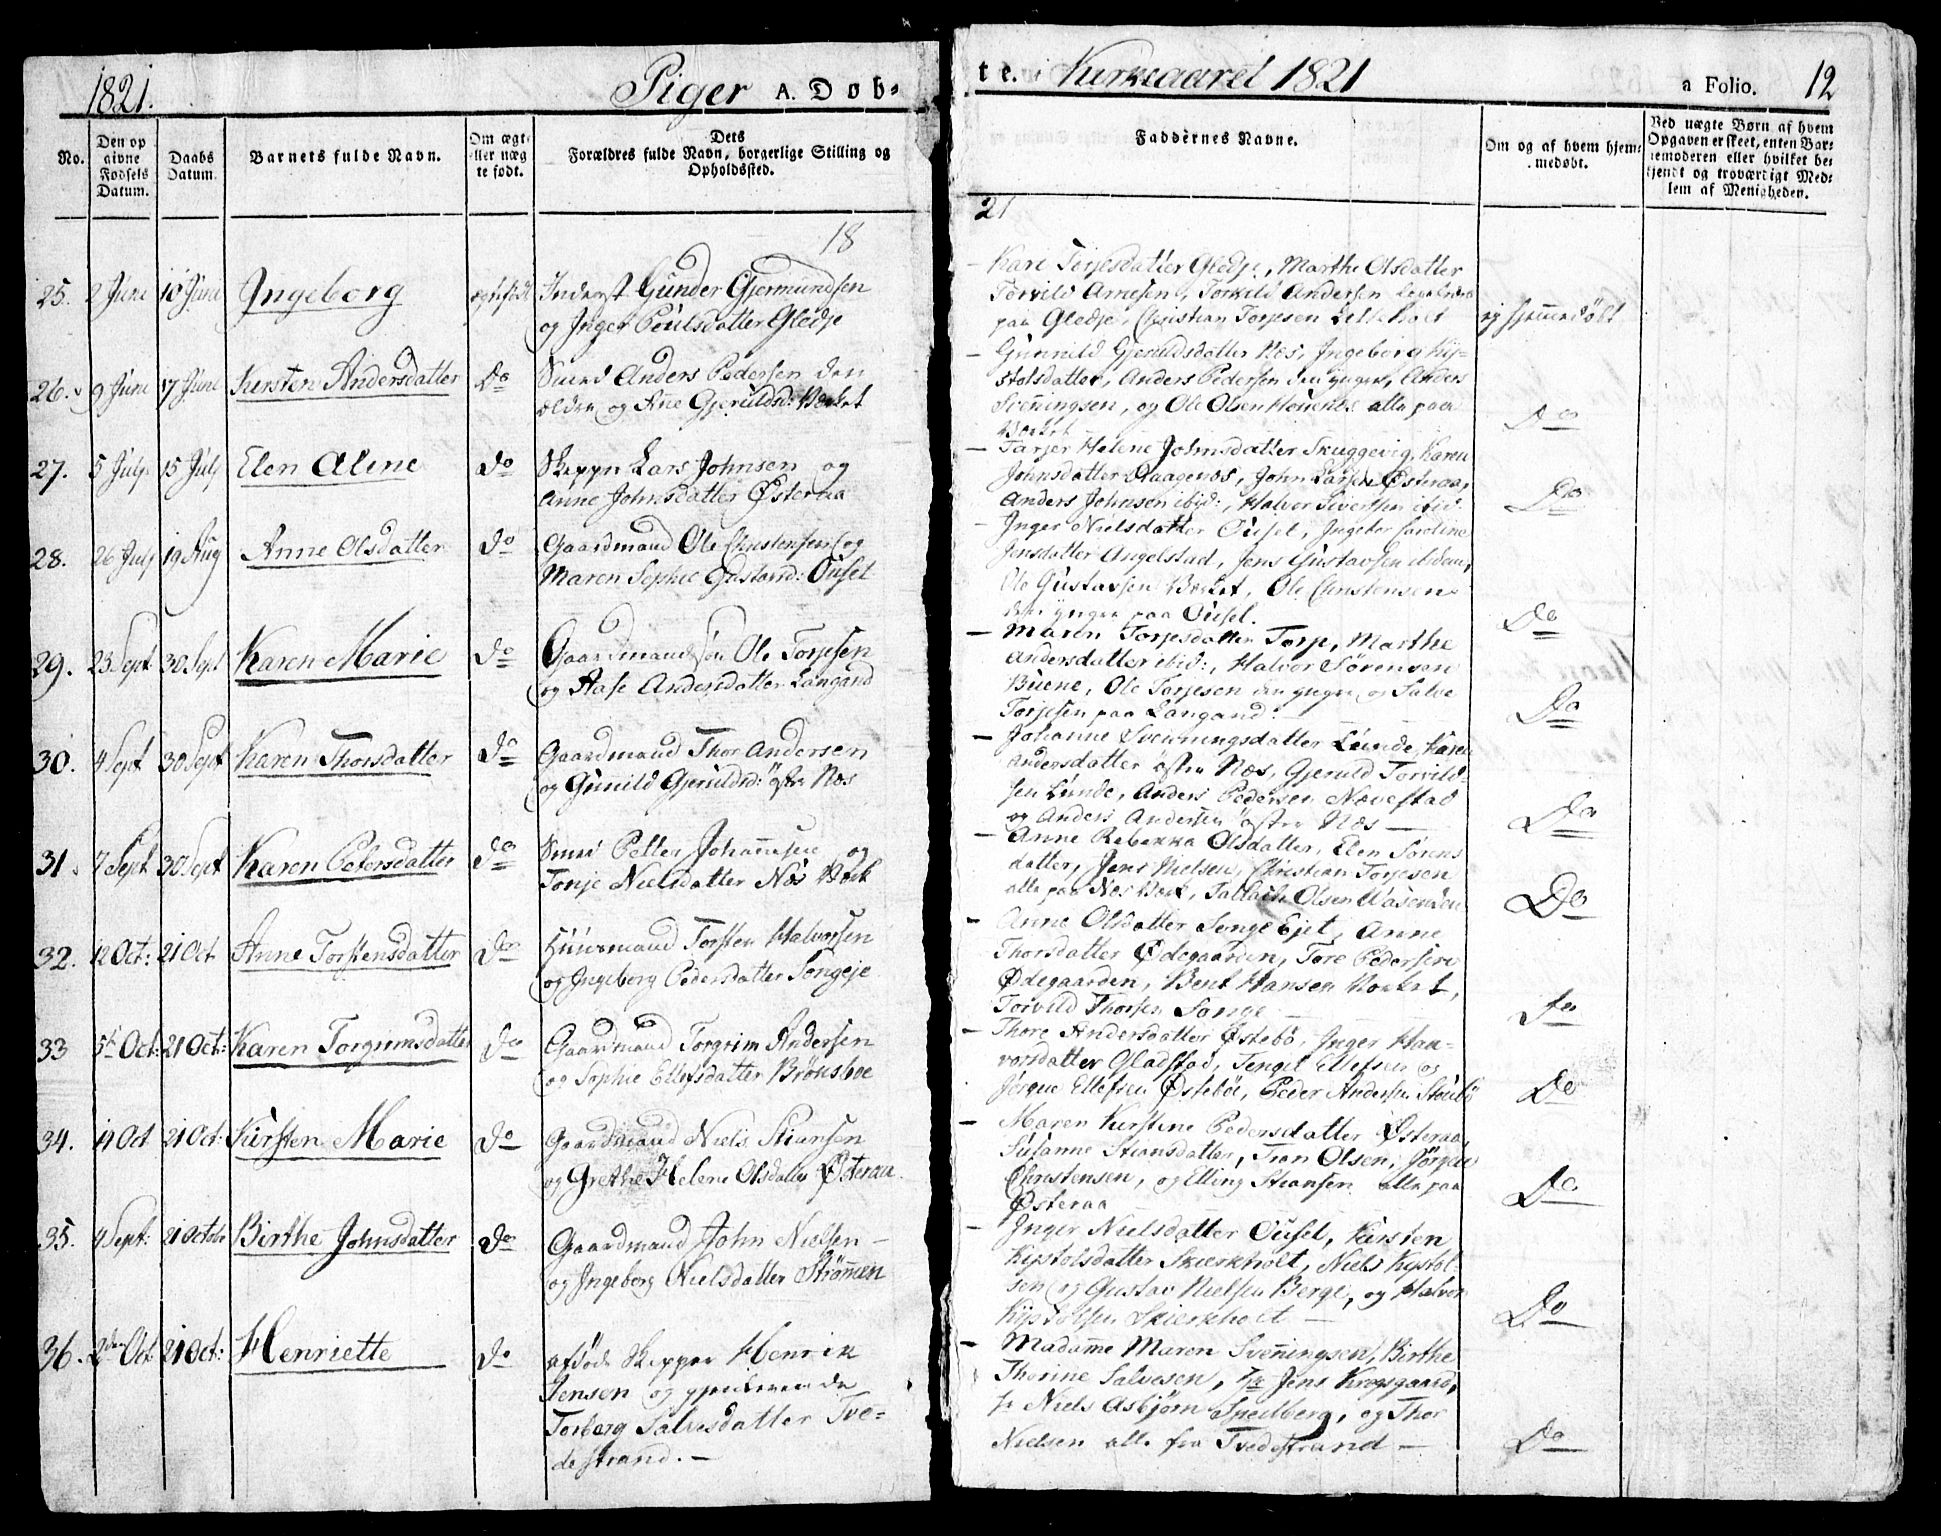 1821.
Piger A. Dob-
te. i Kirkeaaret 1821
a Folio. 12
No.
Den op
givne
Fødsels
Datum.
Daabs
Datum.
Barnets fulde Navn.
Om ægte
eller uæg
te født.
Dets
Forældres fulde Navn, borgerlige Stilling og
Opholdssted.
Faddernes Navne.
Om og af hvem hjem-
medøbt.
Ved uægte Børn af hvem
Opgaven er skeet, enten Bar-
nemoderen eller hvilket be-
kjendt og troværdigt Med-
lem af Menigheden.
18
21
25. 2 Juni 10 Juni Ingeborg
Inderst Gunder Gjermundsen
og Inger Poulsdatter Gledje
— Kari Torjesdatter Gledje, Marthe Olsdatter
Torkild Arnesen, Torkild Andersen
paa Gledje, Christian Torjesen Lilleholt
ej hjemmedøbt
26. 9 Juni 17 Juni Kirsten Andersdatter Do
Smed Anders Pedersen den
ældre og Ane Gjeruldsd: Værket
— Gunnild Gjeruldsdatter Næs, Ingeborg Ky-
stolsdatter, Anders Pedersen den yngre, Anders
Svenningsen, og Ole Olsen alle paa
Værket
Do
27. 5 July 15 July Elen Aline Do
Skipper Lars Johnsen og
Anne Johnsdatter Østeraa
— Tarjer Helene Johnsdatter Skuggevig, Karen
Johnsdatter Flaagenæs, John Larsen Østeraa,
Anders Johnsen ibid:, Halvor Sivertsen ibid:
Do
28. 26 July 19 Aug Anne Olsdatter Do
Gaardmand Ole Christensen og
Maren Sophie Gustavsd: Ousel
— Inger Nielsdatter Ousel, Ingebor Caroline
Jensdatter Angelstad, Jens Gustavsen ibidem,
Ole Gustavsen Værket, Ole Christensen
den yngre paa Ousel.
Do
29. 23 Sept 30 Sept Karen Marie Do
Gaardmandssøn Ole Torjesen
og Aase Andersdatter Langand
— Maren Torjesdatter Torp, Marthe
Andersdatter ibid:, Halvor Sørensen
Buene, Ole Torjesen den yngre, og Salve
Torjesen paa Langand:
Do
30. 4 Sept 30 Sept Karen Thorsdatter Do
Gaardmand Thor Andersen
og Gunild Gjeruldsd: østre Næs
— Johanne Svenningsdatter Lunde, Karen
Andersdatter østre Næs, Gjeruld Torvild-
sen Lunde, Anders Pedersen Nævestad
og Anders Andersen østre Næs —
Do
31. 7 Sept 30 Sept Karen Petersdatter Do
Smed Petter Johannesen og
Tonje Nielsdatter Næs Værk
— Anne Rebekka Olsdatter, Elen Sørens
datter, Jens Nielsen, Christian Torjesen
alle paa Næs Værk, Tallach Olsen Vasenden
Do
32. 12 Oct: 21 Oct Anne Torstensdatter Do
Huusmand Torsten Halvorsen
og Ingeborg Pedersdatter Songeje
— Anne Olsdatter Songe Ejet, Anne
Thorsdatter Ødegaarden, Tore Pedersen
Ødegaarden, Bent Hansen Værket,
Torvild Thorsen Songe
Do
33 5te Oct: 21 Oct: Karen Torgrimsdatter Do
Gaardmand Torgrim Andersen
og Sophie Ellefsdatter Brønsboe
— Thore Andersdatter Østebø, Inger Haa-
vorsdatter Gladstad, Tengel Ellefsen og
Jørgen Ellefsen Østeböe, Peder Andersen
Do
34. 14 Oct 21 Oct: Kirsten Marie Do
Gaardmand Niels Stiansen
og Grethe Helene Olsdatter Østeraa
— Maren Kirstine Pedersdatter Østeraa,
Susanne Stiansdatter, Tron Olsen, Jørgen
Christensen, og Elling Stiansen alle paa
Østeraa
Do
35. 4 Sept: 21 Octobr Birthe Johnsdatter Do
Gaardmand John Nielsen —
og Ingeborg Nielsdatter Strømmen
— Inger Nielsdatter Ousel, Kirsten
Kystolsdatter Skierkholt, Niels Kystol-
sen og Gustav Nielsen Berge, og Halvor
Kystolsen Skierkholt —
Do
36. 2den Oct 21 Oct: Henriette Do
afdøde Skipper Henrik
Jensen og gjenlevende
Torberg Salvesdatter Tve-
destrand. —
— Madamme Maren Svenningsen, Birthe
Thorine Salvesen, Hr Jens Krogsgaard,
Hr Niels Asbjørn Spedberg, og Thor
Nielsen alle fra Tvedestrand —
Do